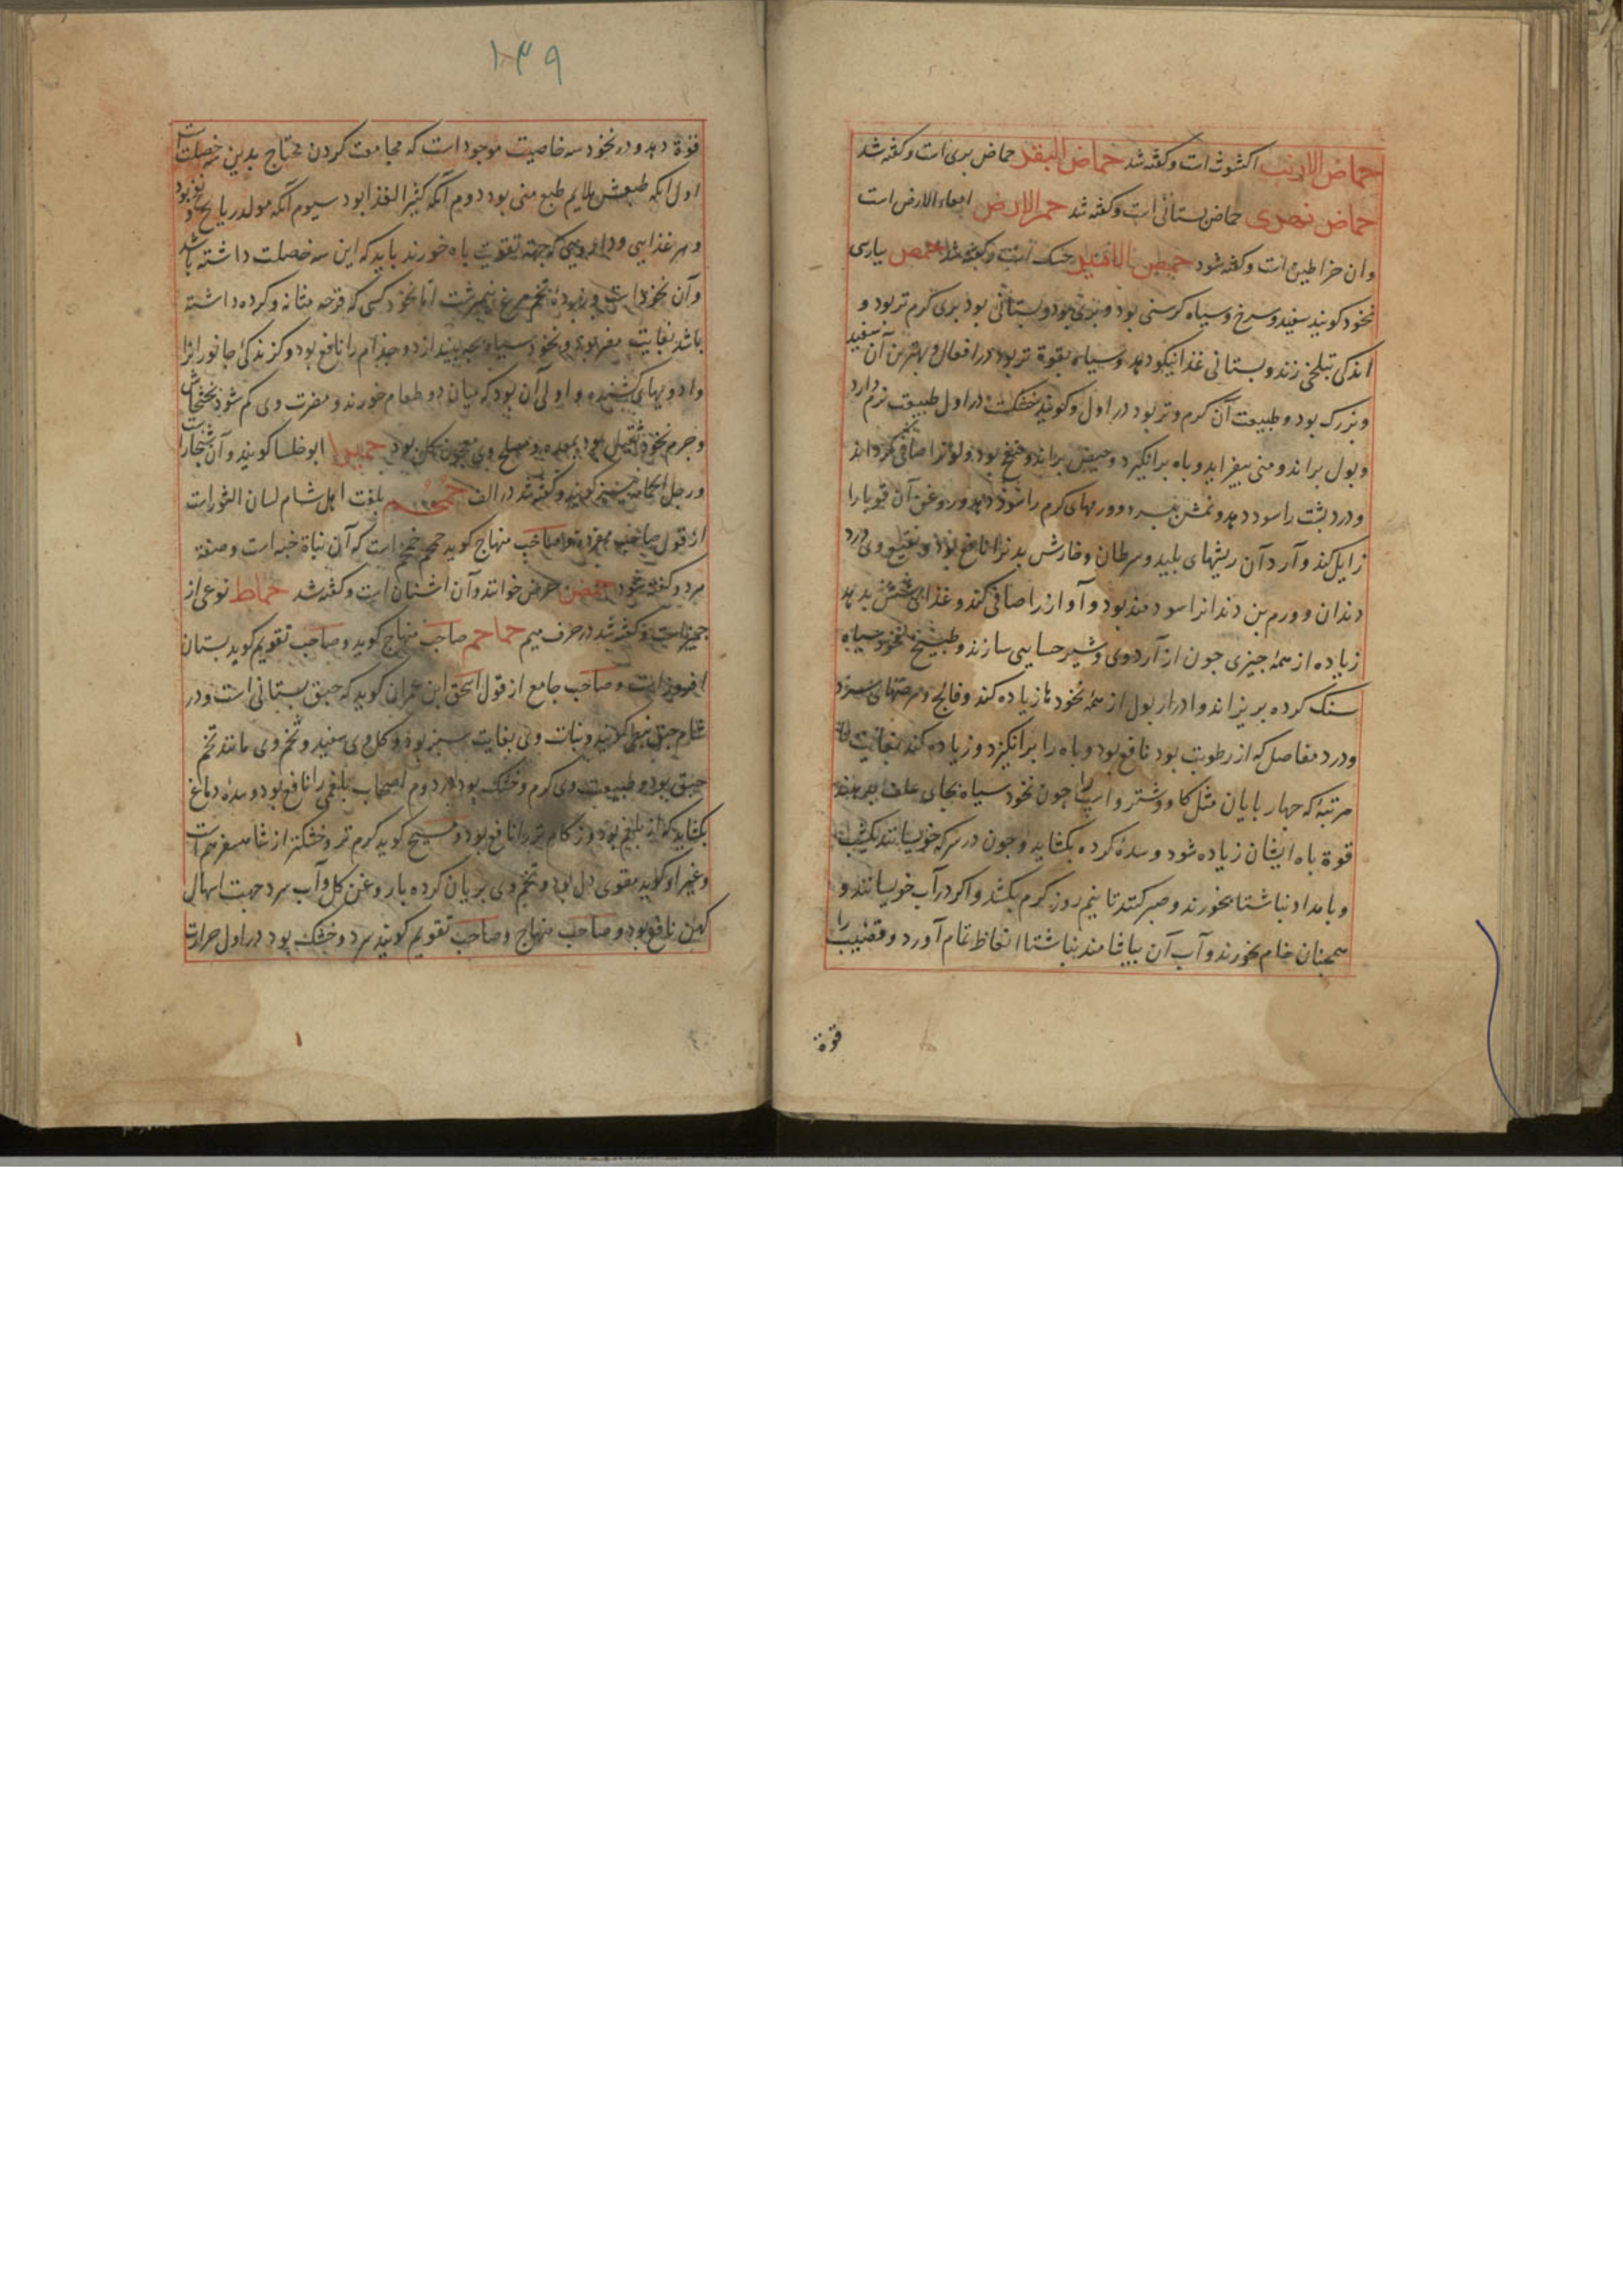 حماض الارنب اکشوث است و کفته شد حماض البقر حماض بری است و کفته شد
حماض نصری حماض بستانی است و کفته شد حمر الارض امعاء الارض است
وان خراطین است و کفته شود حمص الامیر حسک است و کفته شد حمص بپارسی
نخود کویند سفید و سرخ و سیاه کرسنی بود و بری بود و بستانی بود بری کرم تر بود و
اندکی بتلخی زند و بستانی غذا نیکو دهد و سیاه بقوة تر بود در افعال و بهترین آن سفید
و بزرک بود و طبیعت آن کرم و تر بود در اول و کویند خشکست در اول طبیعت نرم دارد
و بول براند و منی بیفزاید و باه برانکیزد و حیض براند و منفخ بود و لون را صافی کرداند
و درد پشت را سود دهد و نمش ببرد و ورمهای کرم را سود دهد و روغن آن قوبا را
زایل کند و آرد آن ریشهای پلید و سرطان و خارش بدن را نافع بود و نقیع وی درد
دندان و ورم بن دندانرا سودمند بود و آواز را صافی کند و غذای شش بدهد
زیاده از همه جیزی جون از آرد وی و شیر حسایی سازند و طبیخ نخود سیاه
سنک کرده بریزاند و ادرار بول از همه نخودها زیاده کند و فالج و مرضهای سرد
و درد مفاصل که از رطوبت بود نافع بود و باه را برانکیزد و زیاده کند بغایت تا
مرتبه که جهار پایان مثل کاو و شتر و اسپ را جون نخود سیاه بجای علف بدهند
قوة باه ایشان زیاده شود و سده کرده بکشاید و جون در سرکه خویسانند یکشب
و بامداد نباشتا بخورند و صبر کنند تا نیم روز کرم بکشد و اکر در آب خویسانند و
همجنان خام بخورند و آب آن بیاشامند بناشتا انعاظ تمام آورد و قضیب را
قوة
۱۳۹
قوة دهد و در نخود سه خاصیت موجود است که مجامعت کردن محتاج بدین سه خصلت است
اول انکه طبعش ملایم طبع منی بود دوم آنکه کثیر الغذا بود سیوم آنکه مولد ریاح و نفخ بود
و هر غذایی و دارویی که جهة تقویت باه خورند باید که این سه خصلت داشته باشد
وآن نخود است و زرده تخم مرغ نیمبرشت اما نخود کسی که قرحه مثانه و کرده داشته
باشد بغایت مضر بود و نخود سیاه جبر بیندازد و جذام را نافع بود و کزندکی جانورانرا
و ادویهای کشنده و اولی آن بود که میان دو طعام خورند و مضرت وی کم شود بخشخاش
و جرم نخود ثقیل بود بمعده و مصلح وی معجون کل بود حمیرا ابو خلسا کویند وآن شنجار است
و رجل الحمامه نیز کویند و کفته شد در الف حمحم بلغت اهل شام لسان الثور است
از قول صاحب مفرده و صاحب منهاج کوید حمحم خمخم است که آن نباة خبه است و صفة
هر دو کفته شود حمض حرض خوانند وآن اشنان است و کفته شد حماط نوعی از
جمیز است و کفته شد در حرف میم حماحم صاحب منهاج کوید و صاحب تقویم کوید بستان
افروز است و صاحب جامع از قول اسحق ابن عمران کوید که حبق بستانی است و در
شام حبق نبطی کویند و نبات وی بغایت سبز بود و کل وی سفید و تخم وی مانند تخم
حبق بود و طبیعت وی کرم و خشک بود در دوم اصحاب بلغمی را نافع بود و سده دماغ
بکشاید که از بلغم بود و زکام تر را نافع بود و مسیح کوید کرم تر و خشکتر از شاهسفرم است
و غیر او کوید مقوی دل بود و تخم وی بریان کرده با روغن کل و آب سرد جهت اسهال
کهن نافع بود و صاحب منهاج و صاحب تقویم کویند سرد و خشک بود در اول حرارت